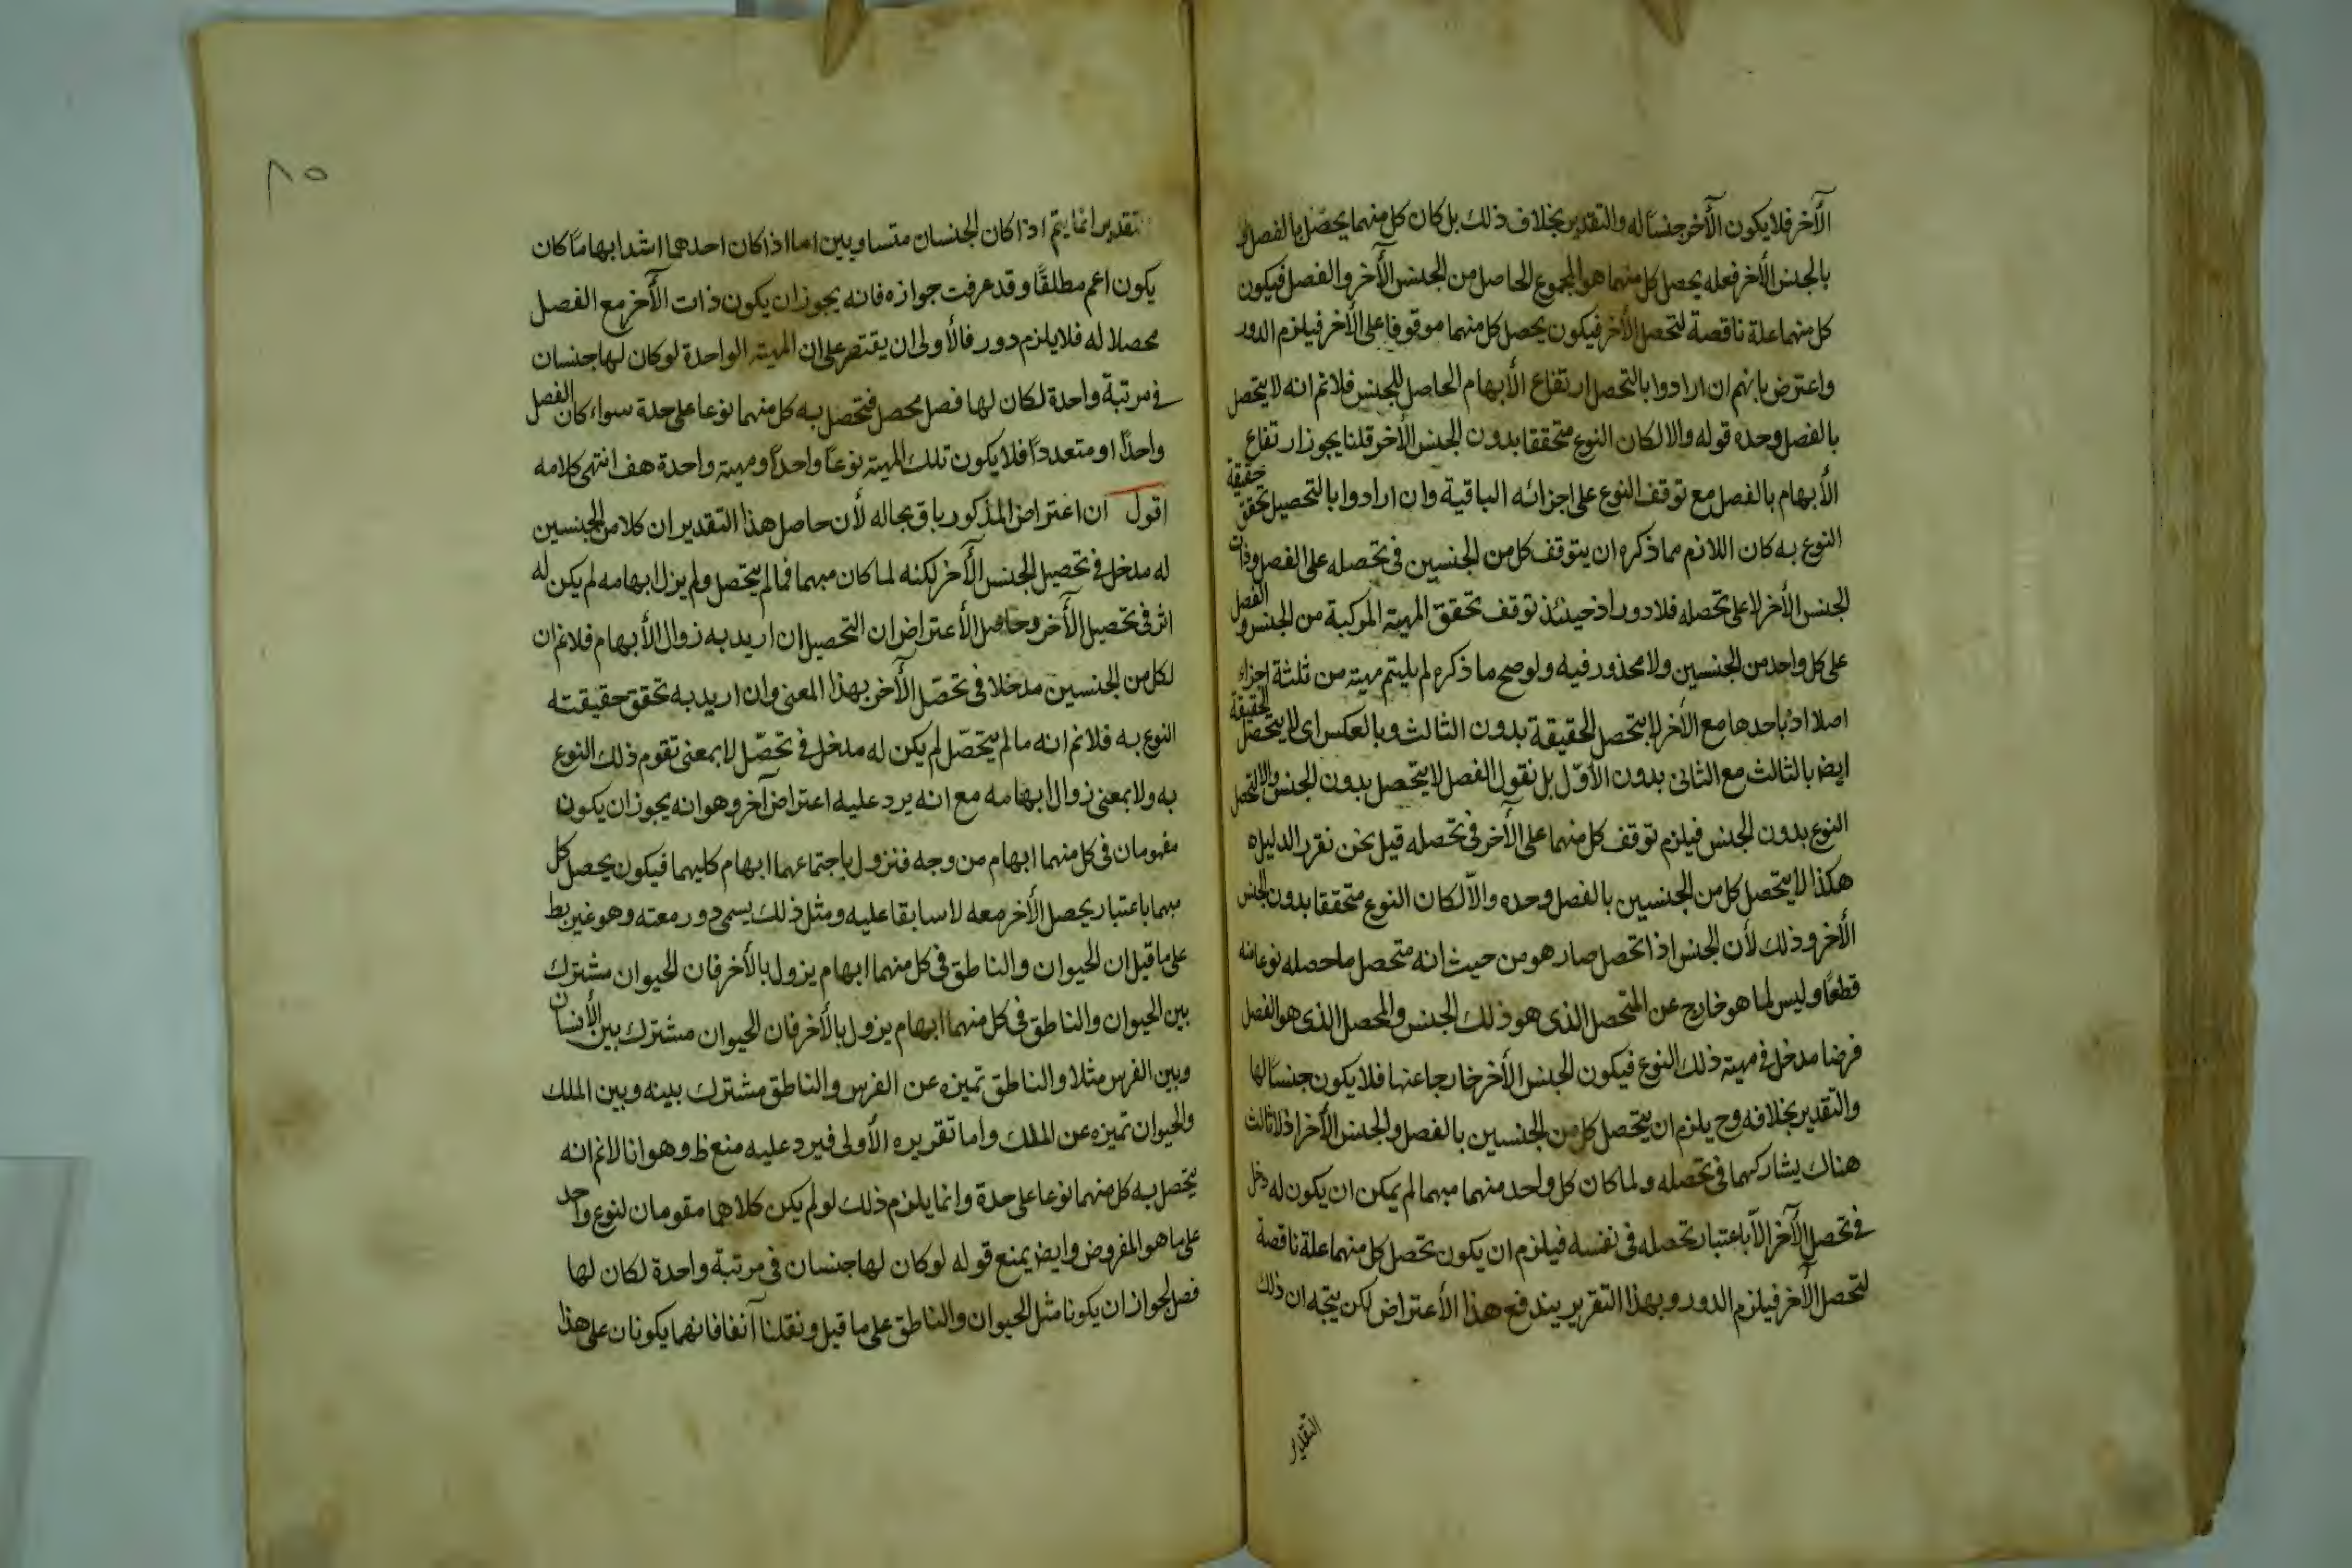 الآخر فلا يكون الآخر جنساً له والتقدير بخلاف ذلك بل كان كل منهما يحصل بالفصل و
بالجنس الأخر فعله يحصل كل منهما هو المجموع الحاصل من الجنس الآخر والفصل فيكون
كل منهما علة ناقصة لتحصل الأخر فيكون يحصل كل منهما موقوفا على الأخر فيلزم الدور
واعترض بانهم ان ارادوا بالتحصل ارتفاع الأبهام الحاصل للجنس فلانم انه لا يتحصل
بالفصل وحده قوله والا لكان النوع متحققا بدون الجنس الأخر قلنا يجوز ارتفاع
الأبهام بالفصل مع توقف النوع على اجزائه الباقية وان ارادوا بالتحصيل تحقق حقيقة
النوع به كان اللازم مما ذكره ان يتوقف كل من الجنسين فى تحصله على الفصل وذات
الجنس الأخر لا على تحصله فلا دور اذ حينئذ توقف تحقق المهية المركبة من الجنس و الفصل
على كل واحد من الجنسين ولا محذور فيه ولو صح ما ذكره لم يليتم مهية من ثلثة اجزاء
اصلا اذ باحدها مع الأخر لا يتحصل الحقيقة بدون الثالث وبالعكس اى لا يتحصل الحقيقة
ايض بالثالث مع الثانى بدون الأوّل بل نقول الفصل لا يتحصل بدون الجنس والا لتحصل
النوع بدون الجنس فيلزم توقف كل منهما على الآخر فى تحصله قيل نحن نقرر الدليل
هكذا لا يتحصل كل من الجنسين بالفصل وحده والاّ لكان النوع متحققا بدون الجنس
الأخر وذلك لأن الجنس اذا تحصل صار هو من حيث انه متحصل ما حصله نوعا منه
قطعاً وليس لما هو خارج عن المتحصل الذى هو ذلك الجنس والمحصل الذى هو الفصل
فرضا مدخل فى مهية ذلك النوع فيكون الجنس الأخر خارجا عنها فلا يكون جنساً لها
والتقدير بخلافه وح يلزم ان يتحصل كل من الجنسين بالفصل والجنس الأخر اذ لا ثالث
هناك يشاركهما فى تحصله ولما كان كل واحد منهما مبهما لم يمكن ان يكون له دخل
فى تحصل الآخر الاّ باعتبار تحصله فى نفسه فيلزم ان يكون تحصل كل منهما علة ناقصة
لتحصل الآخر فيلزم الدور وبهذا التقرير يندفع هذا الأعتراض لكن يتجه ان ذلك
التقدير
٨٥
التقدير انما يتم اذا كان الجنسان متساويين اما اذا كان احدهما اشد ابهاما كان
يكون اعم مطلقاً وقد عرفت جوازه فانه يجوز ان يكون ذات الآخر مع الفصل
محصلا له فلا يلزم دور فالأولى ان يقتصر على ان المهية الواحدة لو كان لها جنسان
فى مرتبة واحدة لكان لها فصل محصل فتحصل به كل منهما نوعا على حدة سواء كان الفصل
واحداً او متعدداً فلا يكون تلك المهية نوعاً واحداً ومهية واحدة هف انتهى كلامه
اقول ان اعتراض المذكور باق بحاله لأن حاصل هذا التقدير ان كلا من الجنسين
له مدخل فى تحصيل الجنس الآخر لكنه لما كان مبهما فما لم يتحصل ولم يزل ابهامه لم يكن له
اثر فى تحصيل الآخر وحاصل الأعتراض ان التحصيل ان اريد به زوال الأبهام فلانم ان
لكل من الجنسين مدخلا فى تحصّل الآخر بهذا المعنى وان اريد به تحقق حقيقته
النوع به فلانم انه ما لم يتحصّل لم يكن له مدخل فى تحصّل لا بمعنى تقوم ذلك النوع
به ولا بمعنى زوال ابهامه مع انه يرد عليه اعتراض آخر وهو انه يجوز ان يكون
مفهومان فى كل منهما ابهام من وجه فنزول باجتماعهما ابهام كليهما فيكون يحصل كل
مبهما باعتبار يحصل الأخر معه لا سابقا عليه ومثل ذلك يسمى دور معته وهو غير بط
على ما قيل ان الحيوان والناطق فى كل منهما ابهام يزول بالأخر فان الحيوان مشترك
بين الحيوان والناطق فى كل منهما ابهام يزول بالأخر فان الحيوان مشترك بين الأنسان
وبين الفرس مثلا والناطق تميزه عن الفرس والناطق مشترك بينه وبين الملك
والحيوان تميزه عن الملك واما تقريره الأولى فيرد عليه منع ظ وهو انا لانم انه
يتحصل به كل منهما نوعا على حدة وانما يلزم ذلك لو لم يكن كلاهما مقومان لنوع واحد
على ما هو المفروض وايض يمنع قوله لو كان لها جنسان فى مرتبة واحدة لكان لها
فصل لجواز ان يكونا مثل الحيوان والناطق على ما قيل ونقلنا آنفا فانهما يكونان على هذا